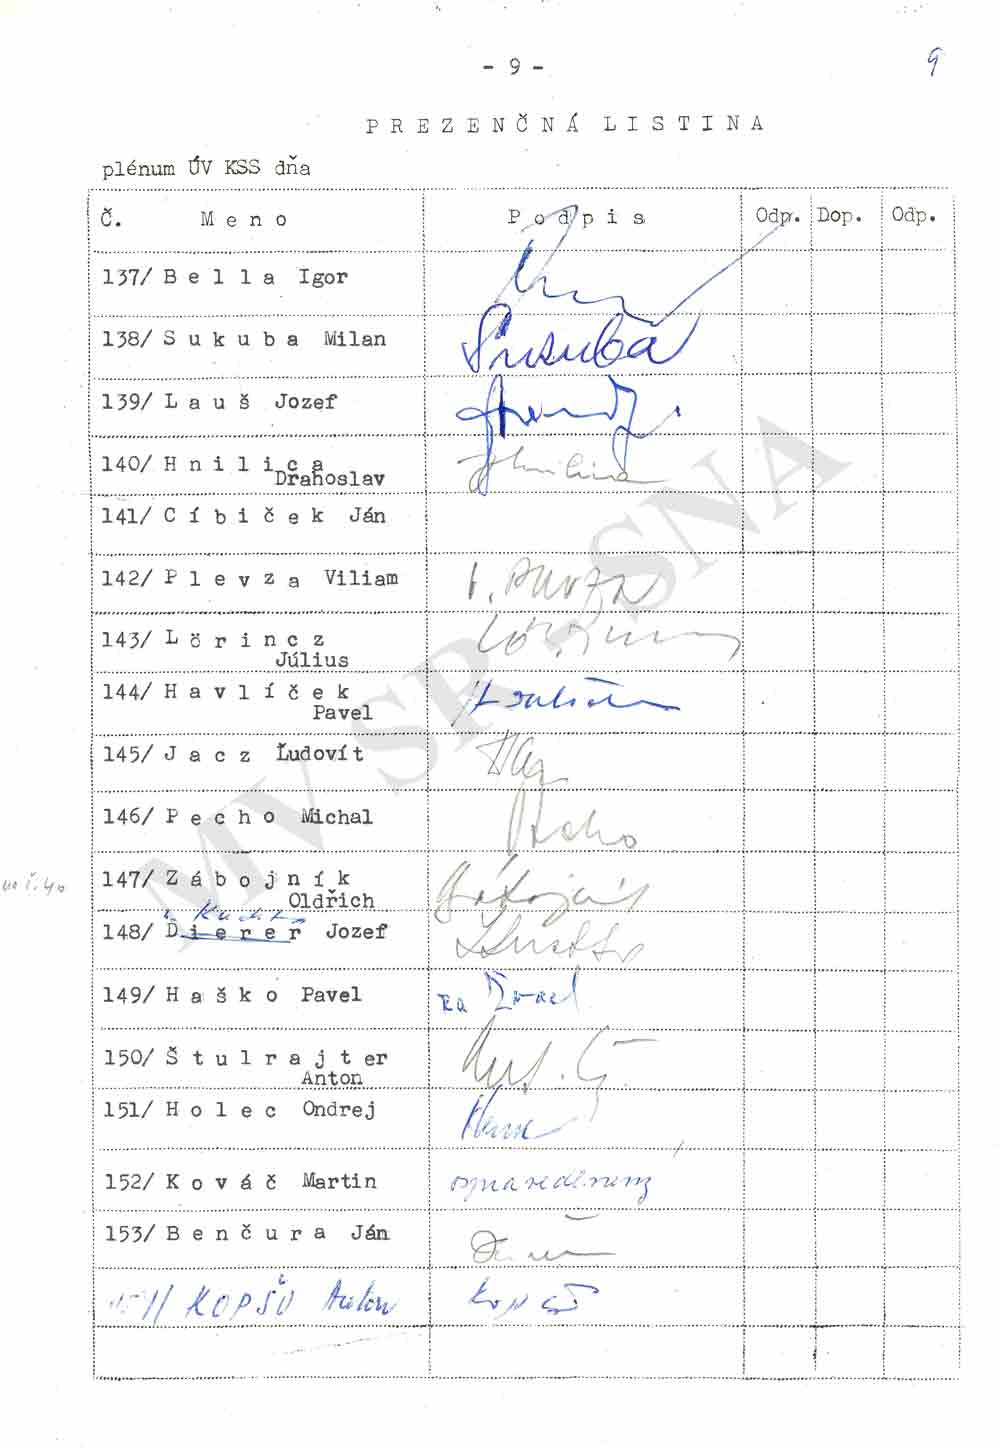 - 9 -
9
PREZENČNÁ LISTINA
plénum ÚV KSS dňa
Č. Meno Podpis Odp. Dop. Odp.
137/ Bella Igor
138/ Sukuba Milan Sukuba
139/ Lauš Jozef
140/ Hnilica Drahoslav Hnilica
141/ Cíbiček Ján
142/ Plevza Viliam V. PLEVZA
143/ Lörincz
Július
144/ Havlíček
Pavel
145/ Jacz Ľudovít
146/ Pecho Michal Pecho
147/ Zábojník
Oldřich
148/ Dierer Jozef
149/ Haško Pavel za
150/ Štulrajter
Anton
151/ Holec Ondrej
152/ Kováč Martin ospravedlnený
153/ Benčura Ján
KOPŠO Anton
MV SR, SNA